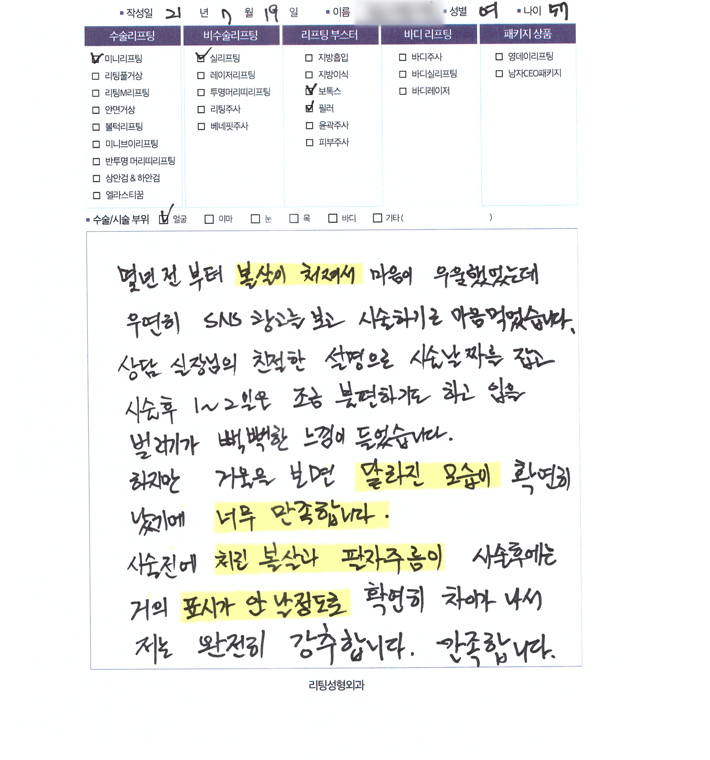 ▪ 작성일 21 년 7 월 19 일 ▪ 이름 ▪ 성별 여 ▪ 나이 57
수술리프팅 비수술리프팅 리프팅 부스터 바디 리프팅 패키지 상품
☑ 미니리프팅 ☑ 실리프팅 □ 지방흡입 □ 바디주사 □ 영데이리프팅
□ 리팅풀거상 □ 레이저리프팅 □ 지방이식 □ 바디실리프팅 □ 남자CEO패키지
□ 리팅M리프팅 □ 투명머리띠리프팅 ☑ 보톡스 □ 바디레이저
□ 안면거상 □ 리팅주사 ☑ 필러
□ 볼턱리프팅 □ 베네핏주사 □ 윤곽주사
□ 미니브이리프팅 □ 피부주사
□ 반투명 머리띠리프팅
□ 상안검 & 하안검
□ 엘라스티꿈
▪ 수술/시술 부위 ☑ 얼굴 □ 이마 □ 눈 □ 목 □ 바디 □ 기타 ( )
몇년전 부터 볼살이 쳐져서 마음이 우울했었는데
우연히 SNS 광고를 보고 시술하기로 마음먹었습니다.
상담 실장님의 친절한 설명으로 시술날짜를 잡고
시술후 1~2일은 조금 불편하기도 하고 입을
벌리기가 뻑뻑한 느낌이 들었습니다.
하지만 거울을 보면 달라진 모습이 확연히
났기에 너무 만족합니다.
시술전에 처진 볼살과 팔자주름이 시술후에는
거의 표시가 안 날정도로 확연히 차이가 나서
저는 완전히 강추합니다. 만족합니다.
리팅성형외과